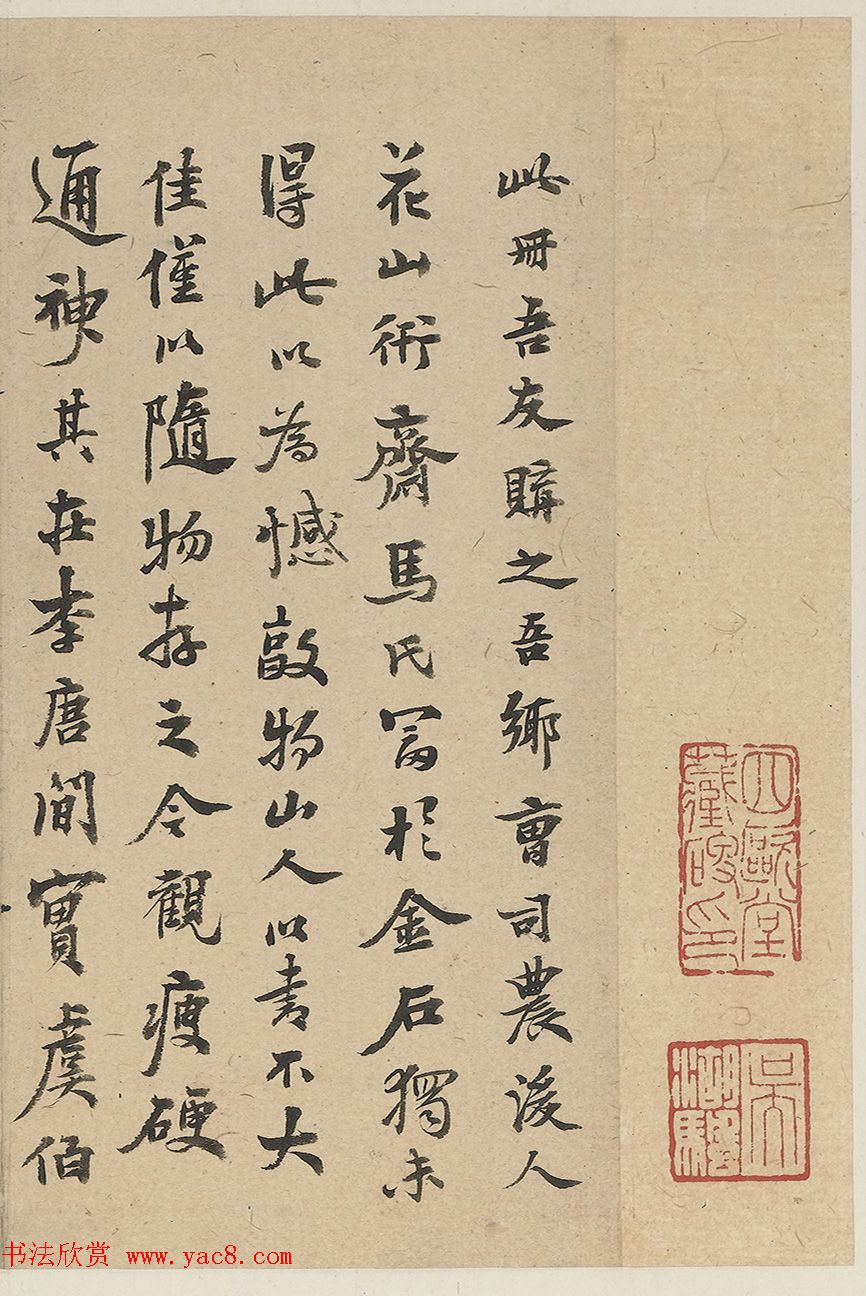 此冊吾友購之吾鄉曹司農後人
花山術齋馬氏富於金石獨未
得此以為憾敵物山人以書不大
佳僅以隨物存之今觀瘦硬
通神其在李唐間實虞伯
四歐堂
吳湖帆
书法欣赏 www.yac8.com